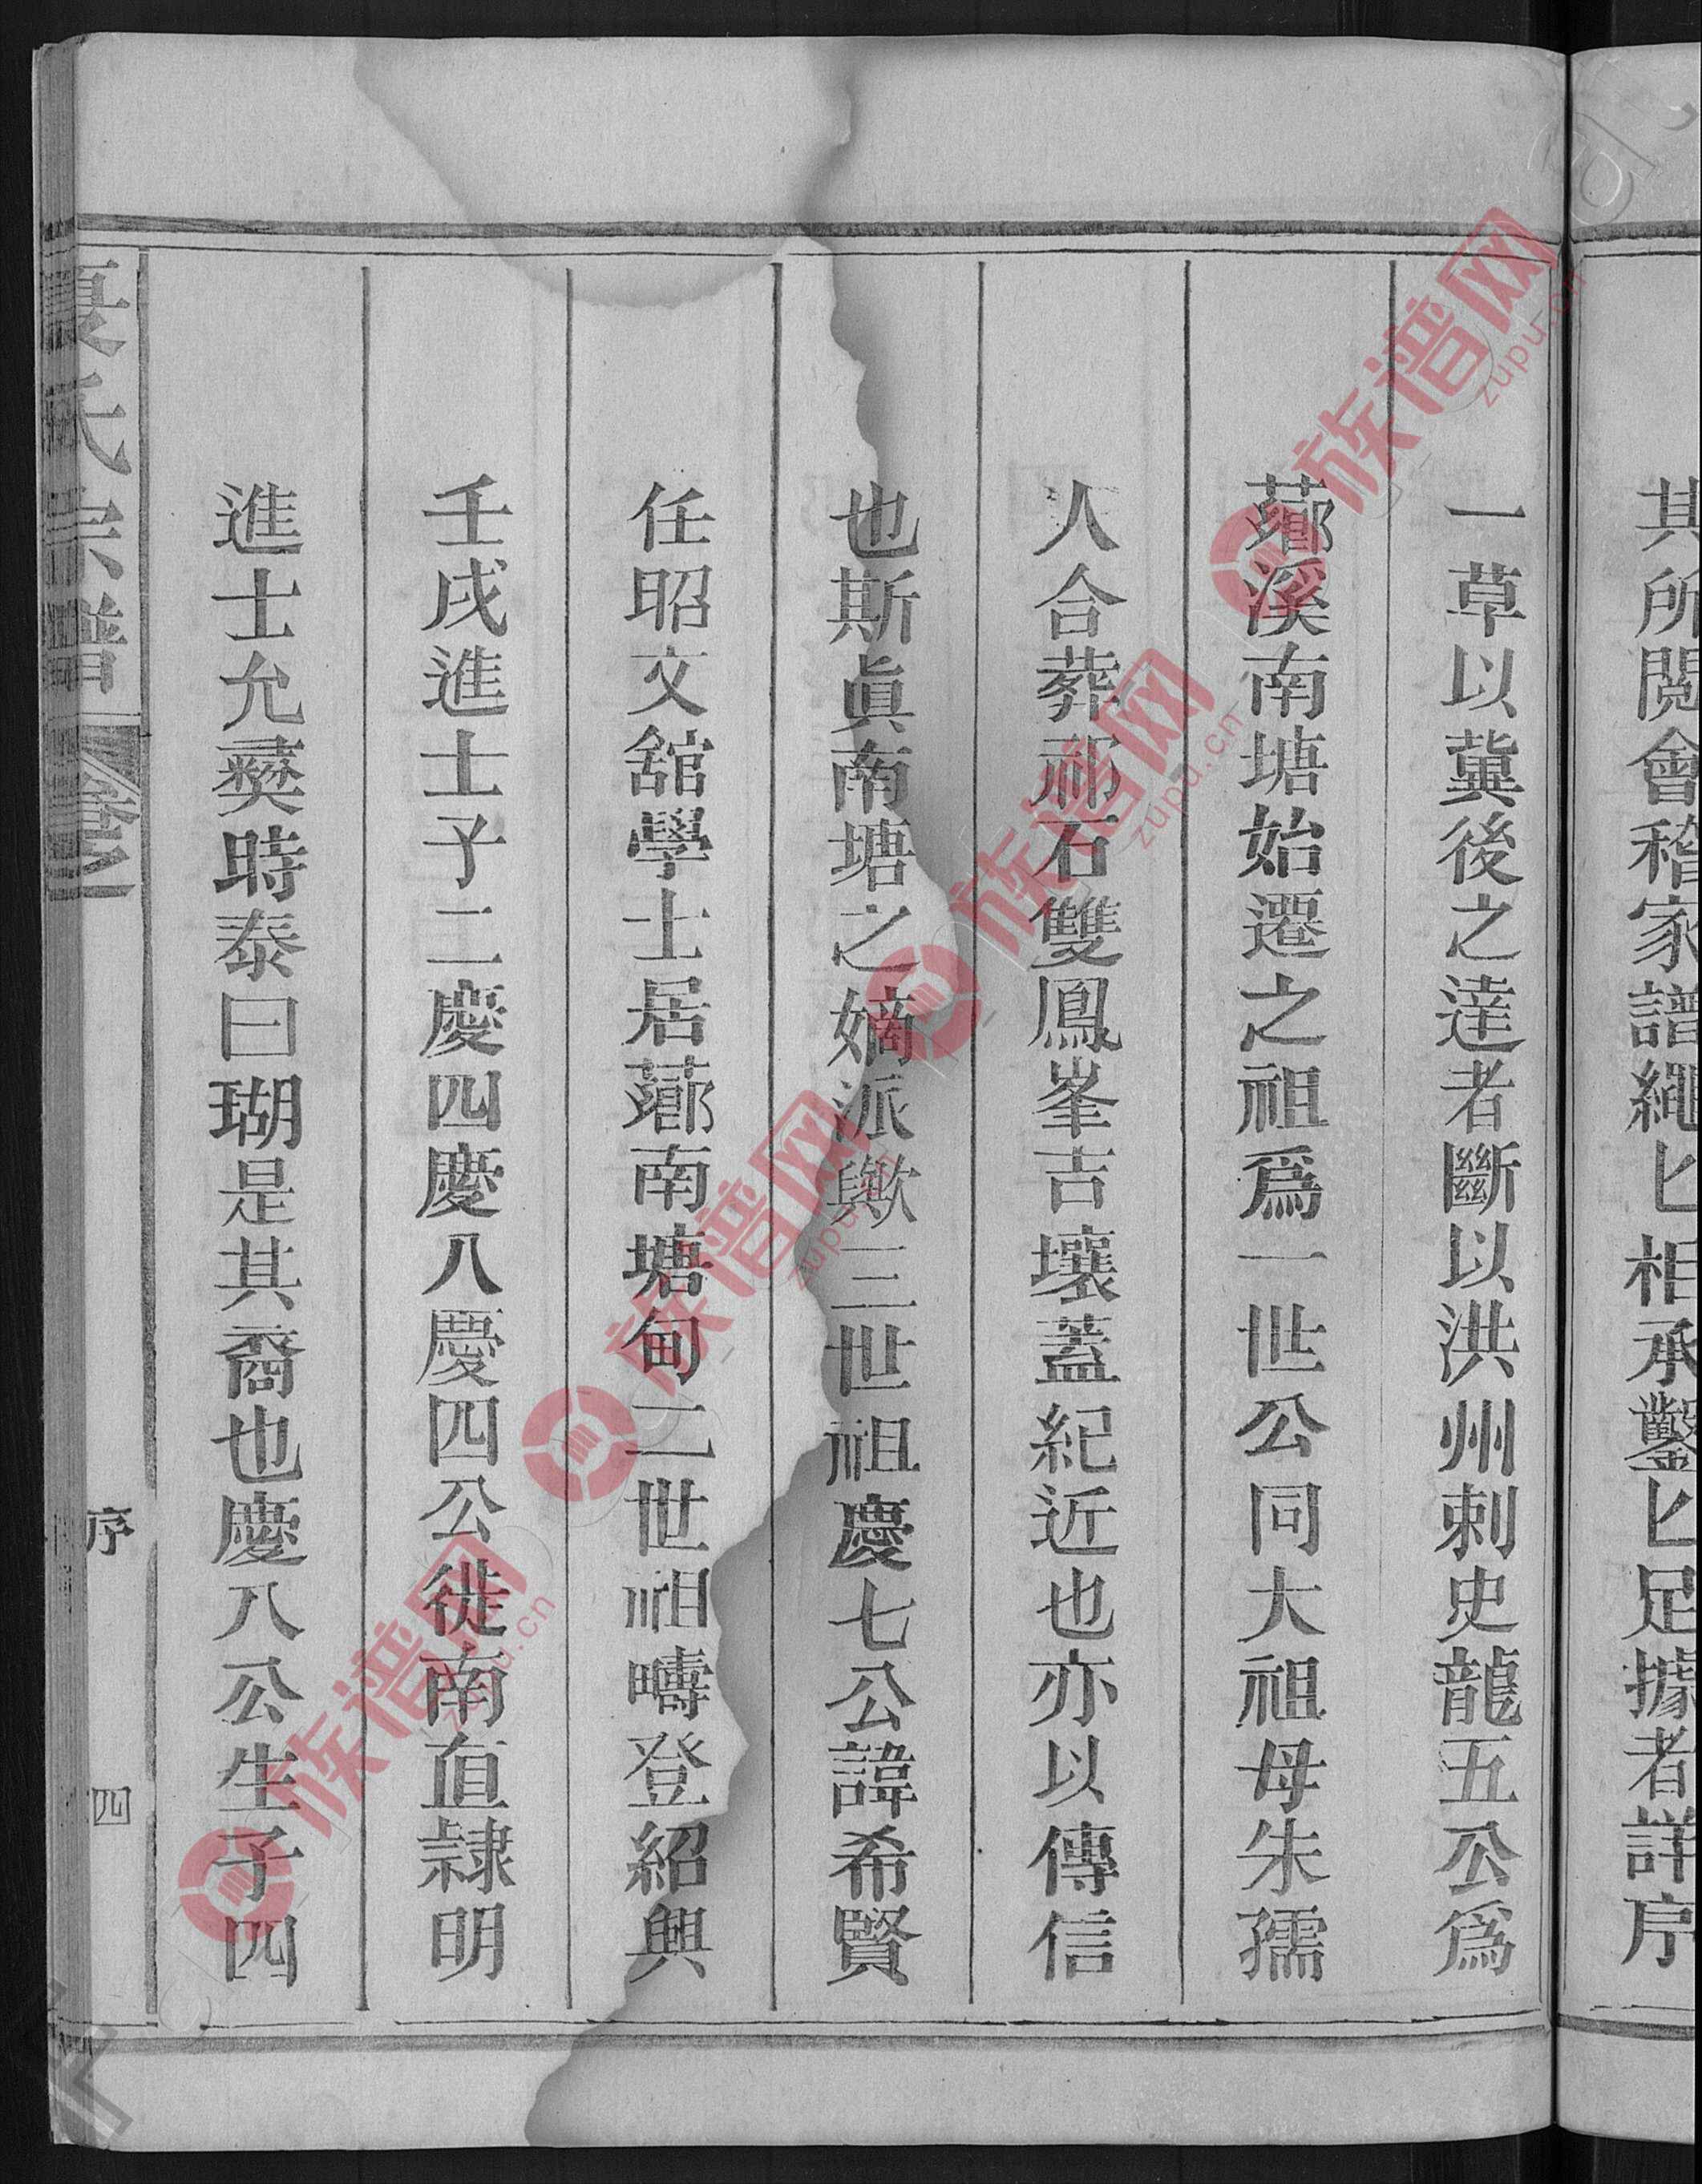 其所閱會稽家譜繩匕相承鑿匕足據者詳序
一草以冀後之達者斷以洪州刺史龍五公爲
薌溪南塘始遷之祖爲一世公同大祖母朱孺
人合葬祁石雙鳳峯吉壤蓋紀近也亦以傳信
也斯眞南塘之嫡派歟三世祖慶七公諱希賢
任昭文舘學士居薌南塘甸二世祖疇登紹興
壬戌進士子二慶四慶八慶四公徙南直隷明
進士允彛時泰曰瑚是其裔也慶八公生子四
夏氏宗譜
卷之一
序
四
族谱网
zupu.cn
族谱网
zupu.cn
族谱网
zupu.cn
族谱网
zupu.cn